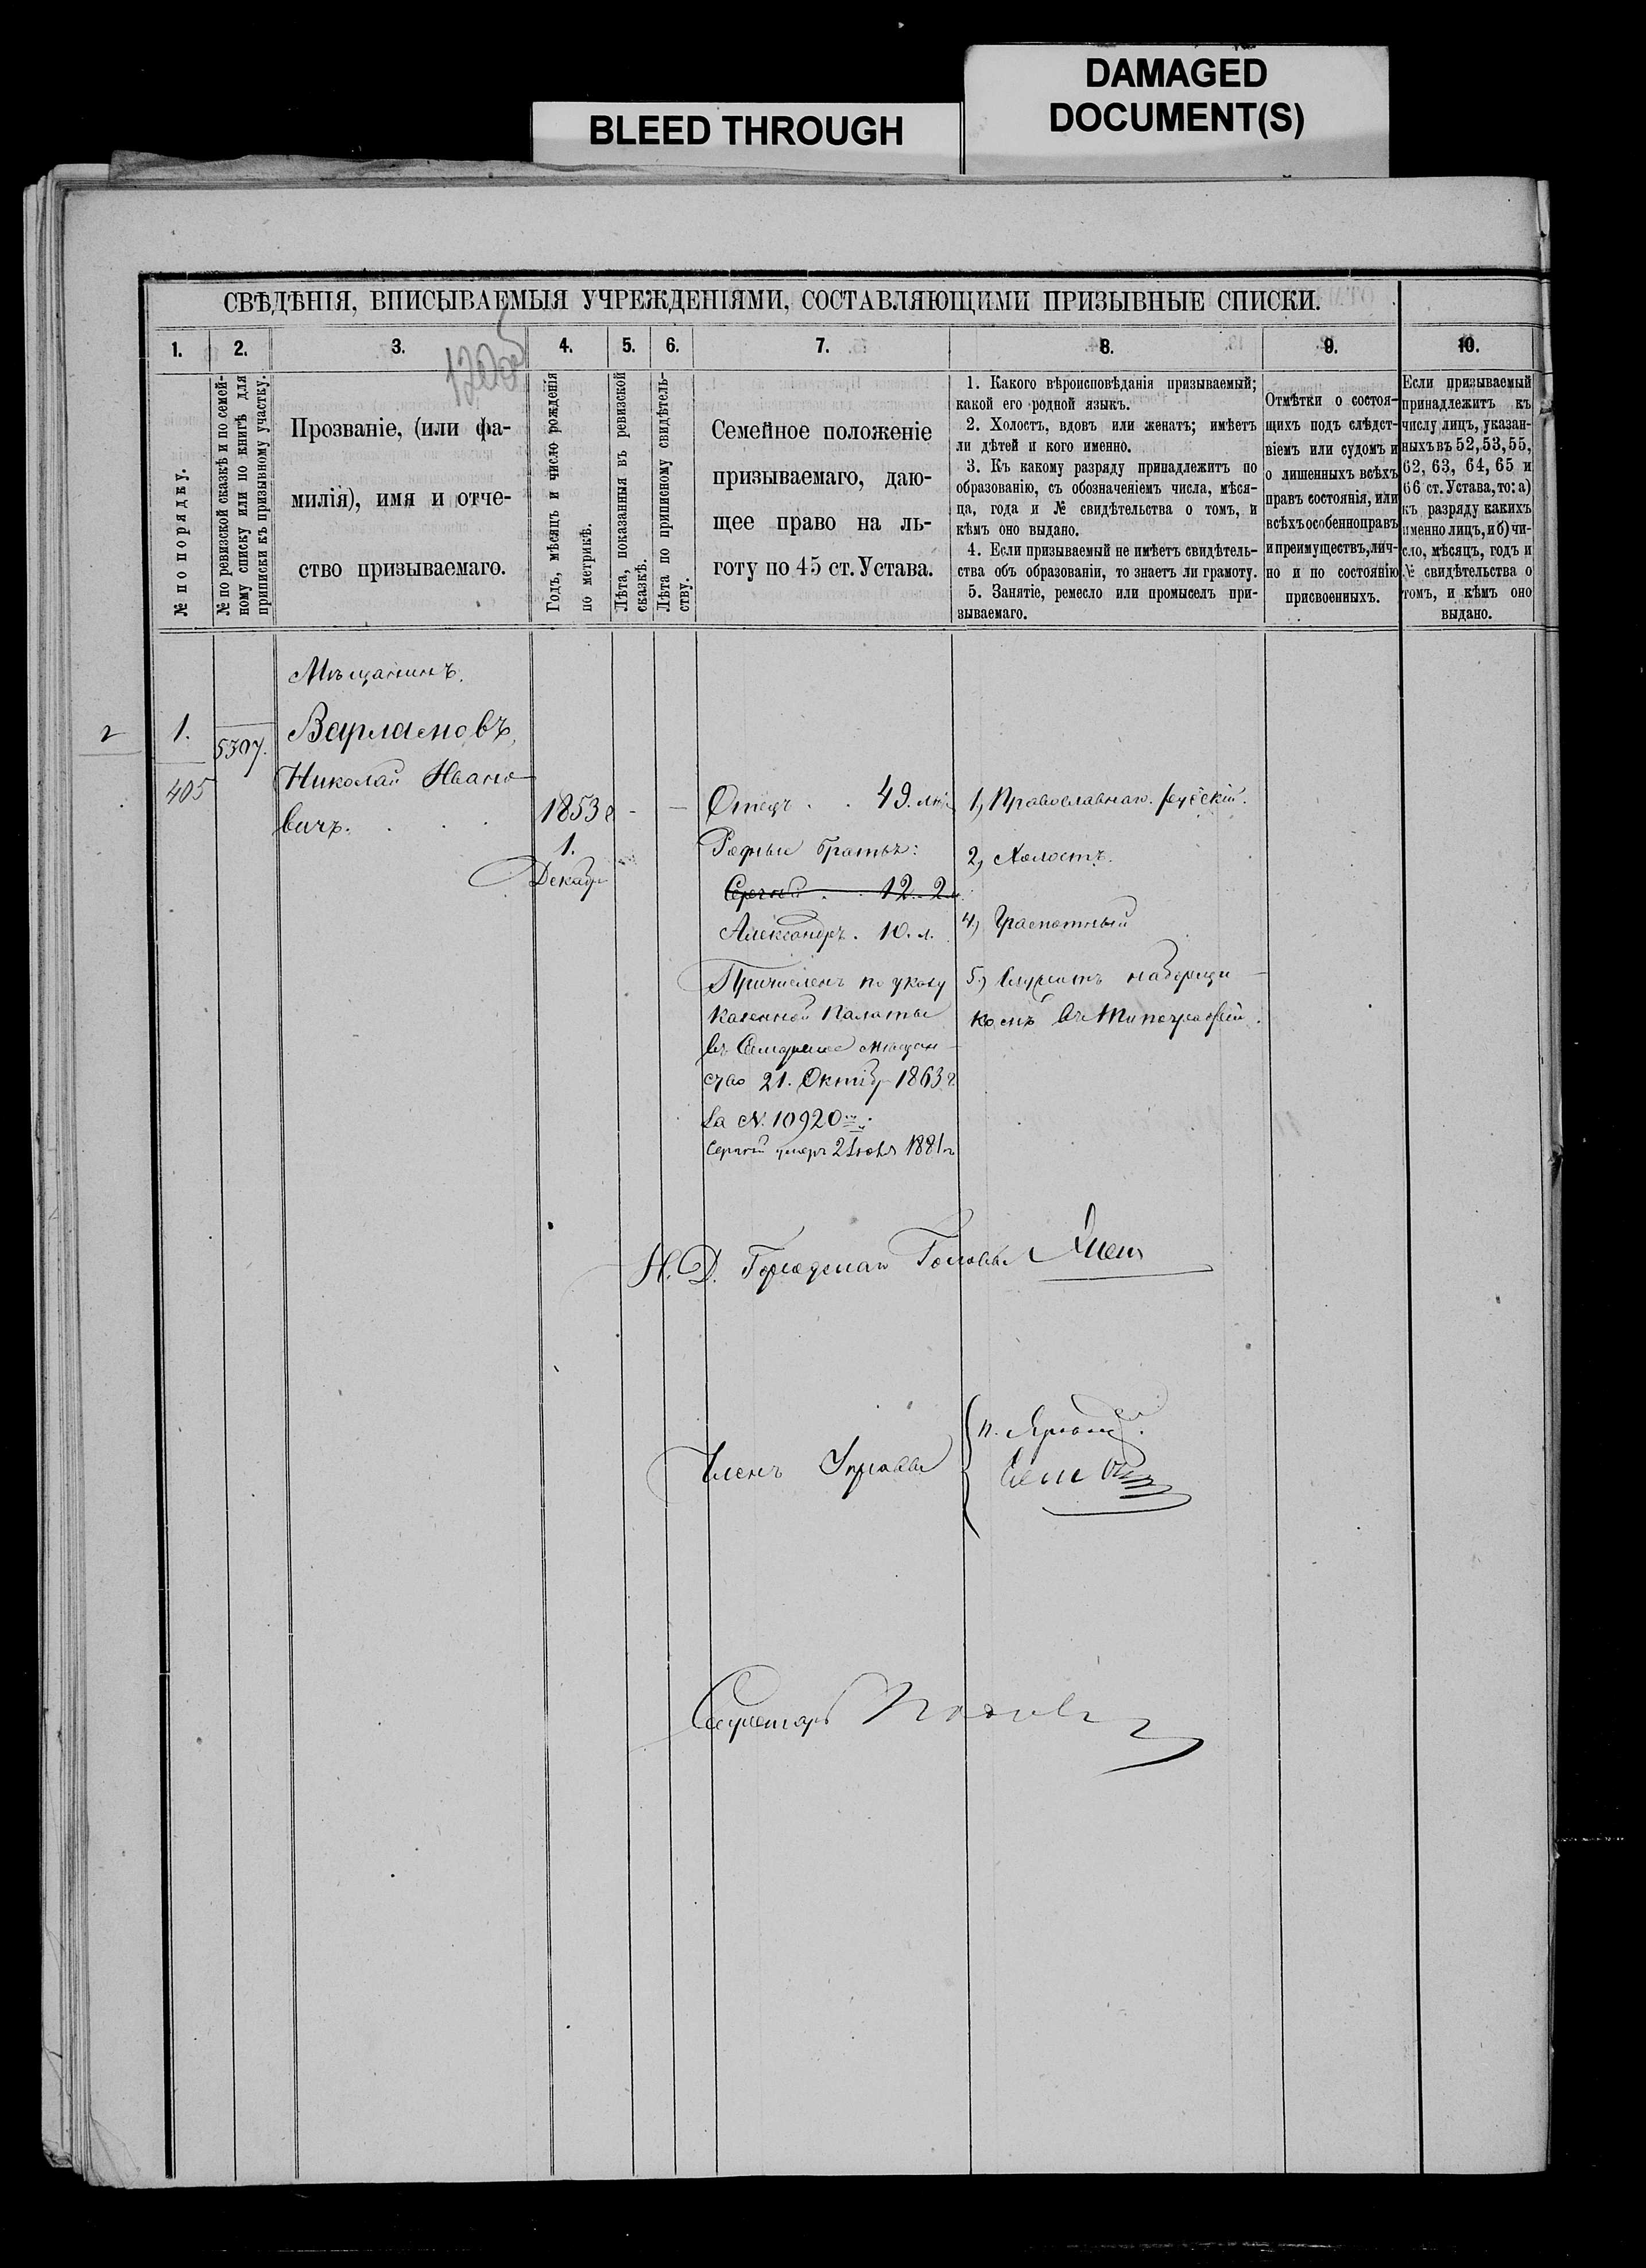 DAMAGED
DOCUMENT(S)
BLEED THROUGH
СВѢДѢНІЯ, ВПИСЫВАЕМЫЯ УЧРЕЖДЕНІЯМИ, СОСТАВЛЯЮЩИМИ ПРИЗЫВНЫЕ СПИСКИ.
1.
2.
3.
4.
5.
6.
7.
8.
9.
10.
№ по порядку.
№ по ревизской сказкѣ и по семей-
ному списку или по книгѣ для
приписки къ призывному участку.
Прозваніе, (или фа-
милія), имя и отче-
ство призываемаго.
Годъ, мѣсяцъ и число рожденія
по метрикѣ.
Лѣта, показанныя въ ревизской
сказкѣ.
Лѣта по приписному свидѣтель-
ству.
Семейное положеніе
призываемаго, даю-
щее право на ль-
готу по 45 ст. Устава.
1. Какого вѣроисповѣданія призываемый;
какой его родной языкъ.
2. Холостъ, вдовъ или женатъ; имѣетъ
ли дѣтей и кого именно.
3. Къ какому разряду принадлежитъ по
образованію, съ обозначеніемъ числа, мѣся-
ца, года и № свидѣтельства о томъ, и
кѣмъ оно выдано.
4. Если призываемый не имѣетъ свидѣтель-
ства объ образованіи, то знаетъ ли грамоту.
5. Занятіе, ремесло или промыселъ при-
зываемаго.
Отмѣтки о состоя-
щихъ подъ слѣдст-
віемъ или судомъ и
о лишенныхъ всѣхъ
правъ состоянія, или
всѣхъ особенно правъ
и преимуществъ, лич-
но и по состоянію
присвоенныхъ.
Если призываемый
принадлежитъ къ
числу лицъ, указан-
ныхъ въ 52, 53, 55,
62, 63, 64, 65 и
66 ст. Устава, то: а)
къ разряду какихъ
именно лицъ, и б) чи-
сло, мѣсяцъ, годъ и
№ свидѣтельства о
томъ, и кѣмъ оно
выдано.
2
1.
405
5397.
Мѣщанинъ.
Варламовъ,
Николай Ивано-
вичъ.
1853 г
1.
Декабр
Отецъ . . 49. лѣт
Родные братья:
Сергей . . 12. 2
Александръ. 10. л.
Причисленъ по указу
Казенной Палаты
въ мѣщан-
ство 21. Октяб 1863 г
за №. 10920
Сергей умеръ 2 Іюля 1881 г
1, Православнаго. русскій.
2, Холостъ.
4, Грамотный
5, Служитъ наборщи-
комъ въ типографіи.
И. Д. Городскаго Головы
Членъ Управы
Секретарь